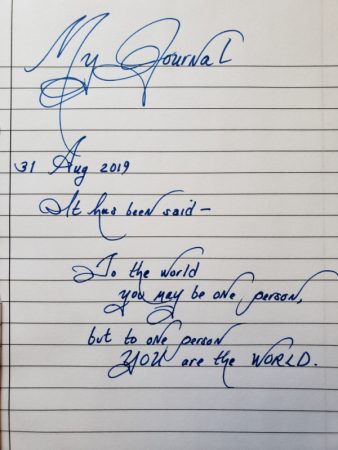 My Journal
31 Aug 2019
It has been said -
To the world
you may be one person,
but to one person
YOU are the WORLD.